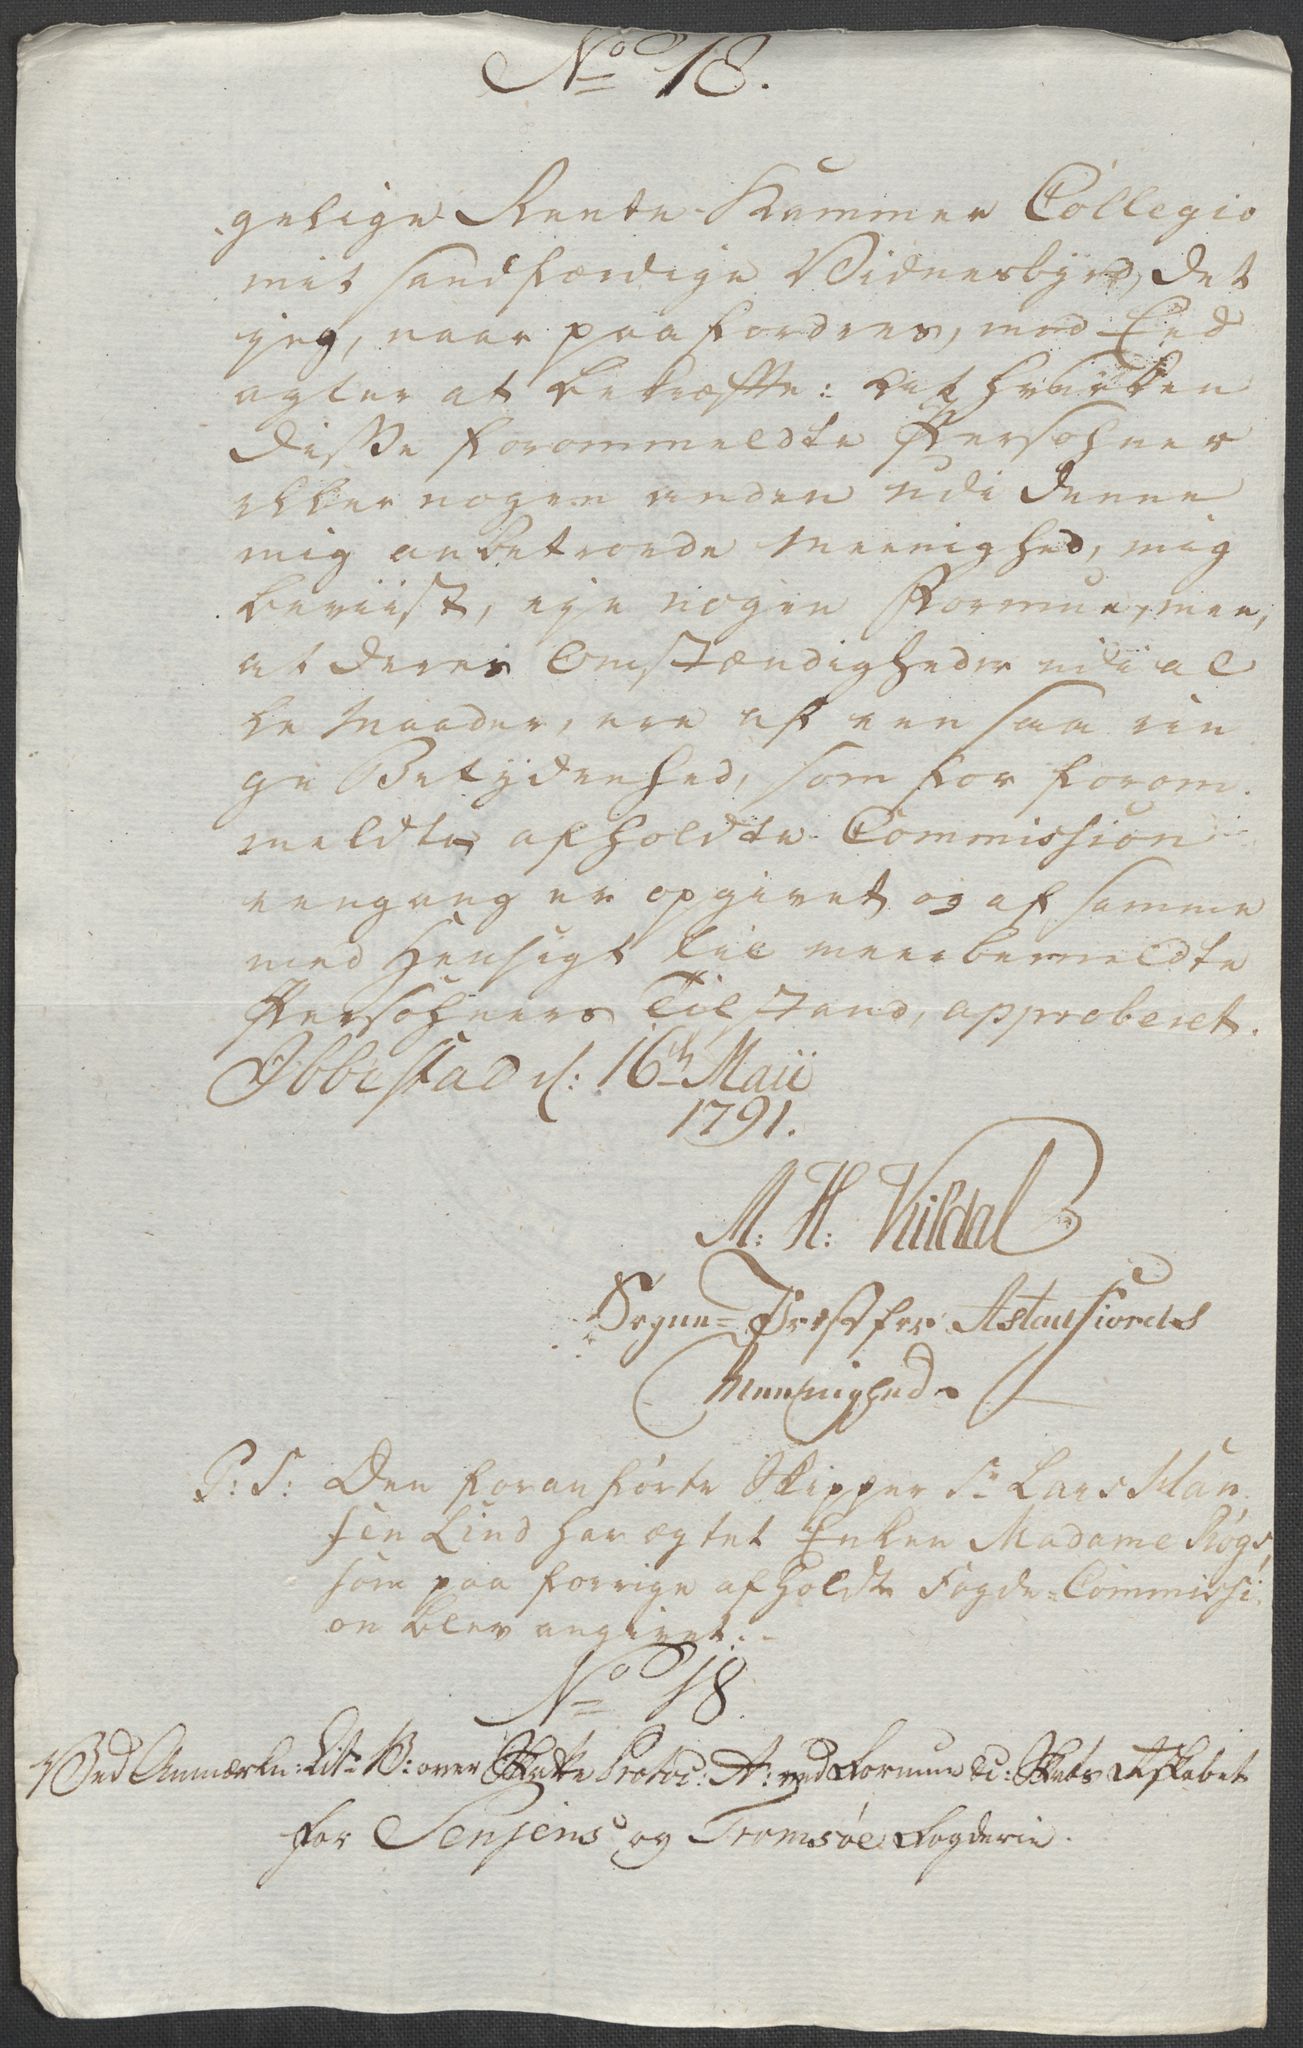 No 18.
gelige Rente-Kammer Collegio
mit sandfærdige Vidnesbyrd, det
jeg, naar paafordres, med Eed
agter at bekræfte: at hverken
disse forommeldte Persohner
eller nogen anden udi denne
mig anbetroede Meenighed, mig
beviist, eje nogen Formue, men,
at deres Omstændigheder udi al
le Maader, ere af een saa rin
ge Betydenhed, som for forom-
meldte afholdte Commission
eengang er opgivet og af samme
med Hensigt til meerbemeldte
Persohners Tilstand, approberet.
Ibbestad d: 16th Maii
1791.
M: H: Kildal
Sogne-Præst for Astaufiords
Meenighed.
P: S: Den foranførte Skipper Sr Lars Han-
sen Lind har ægtet Enken Madame Røgs,
som paa forrige afholdte Fogde-Commissi-
on blev angivet.
No 18
Ved Anmærkn: Litr B: over Skatte Protoc: A: ved Formue &c: Skats Regnskabet
for Senjens og Tromsøe Fogderie.